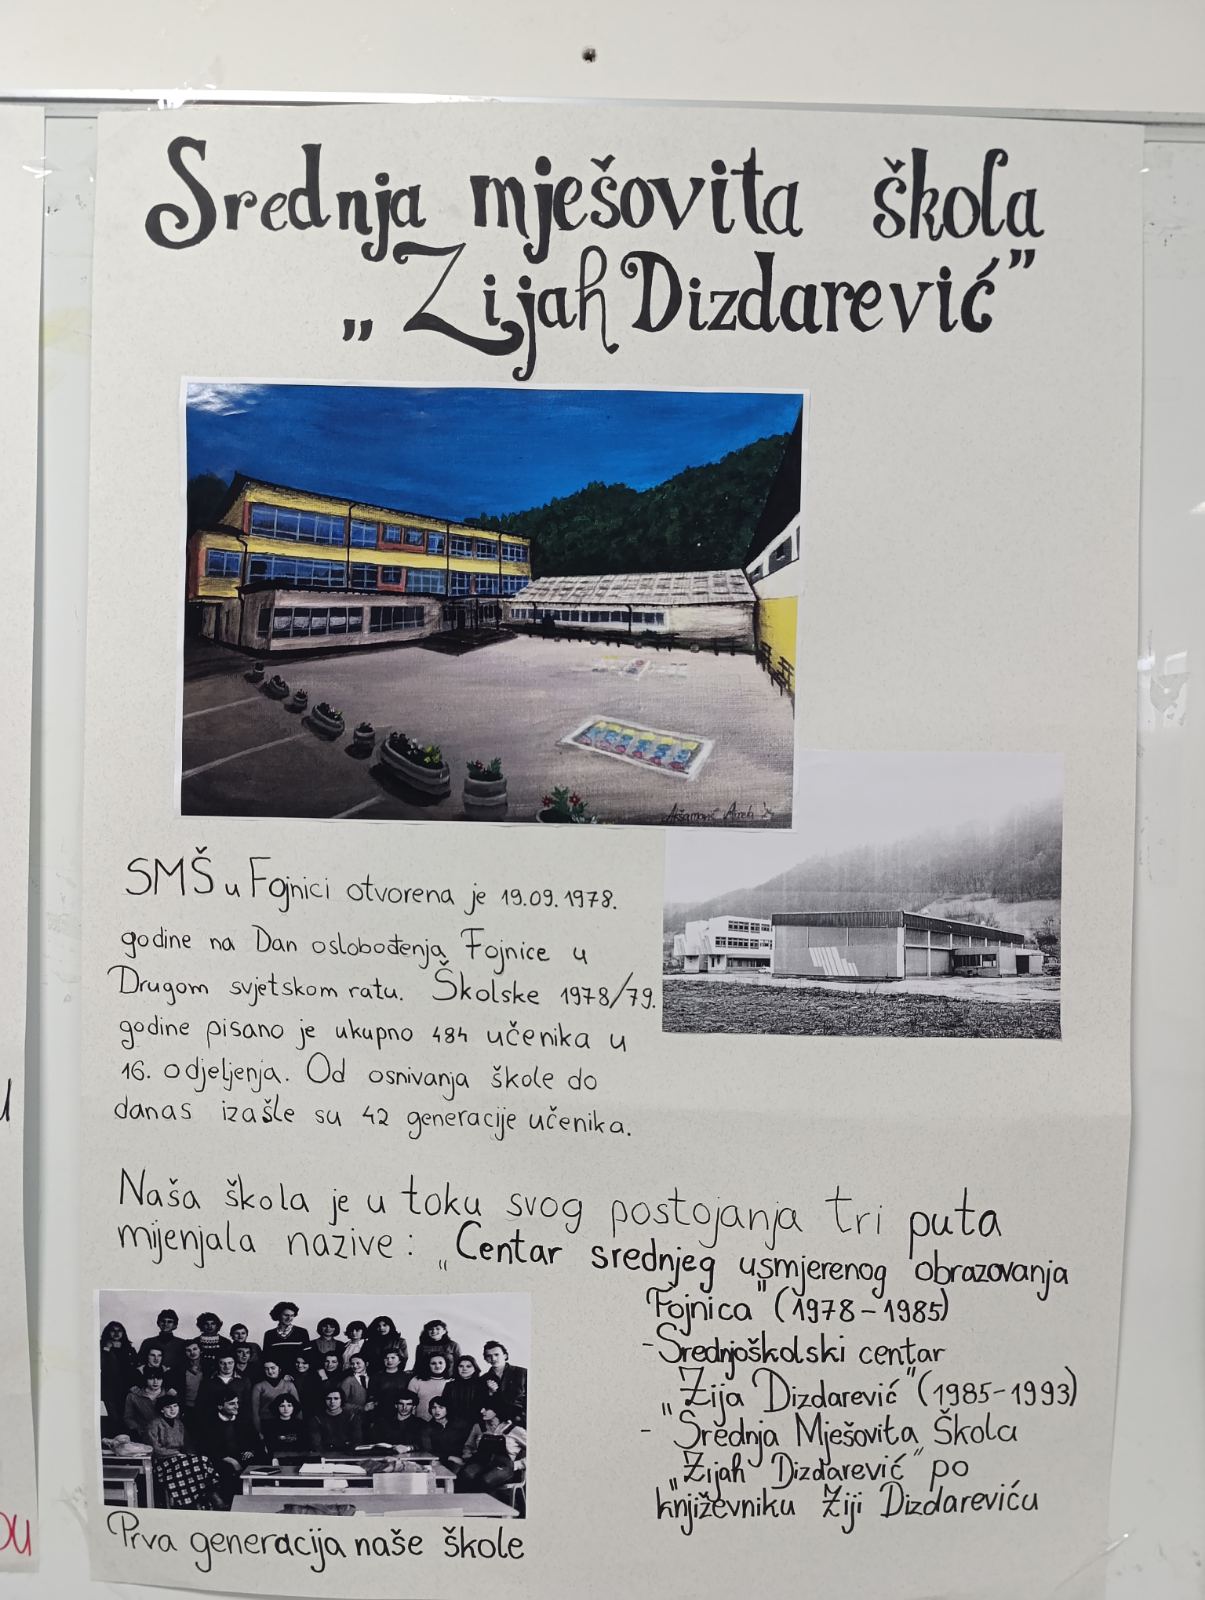 Srednja mješovita škola
„Zijah Dizdarević”
SMŠ u Fojnici otvorena je 19.09.1978.
godine na Dan oslobođenja Fojnice u
Drugom svjetskom ratu. Školske 1978/79.
godine pisano je ukupno 484 učenika u
16. odjeljenja. Od osnivanja škole do
danas izašle su 42 generacije učenika.
Naša škola je u toku svog postojanja tri puta
mijenjala nazive: „Centar srednjeg usmjerenog obrazovanja
Fojnica” (1978-1985)
- Srednjoškolski centar
„Zija Dizdarević” (1985-1993)
- Srednja Mješovita Škola
„Zijah Dizdarević” po
književniku Ziji Dizdareviću
Prva generacija naše škole